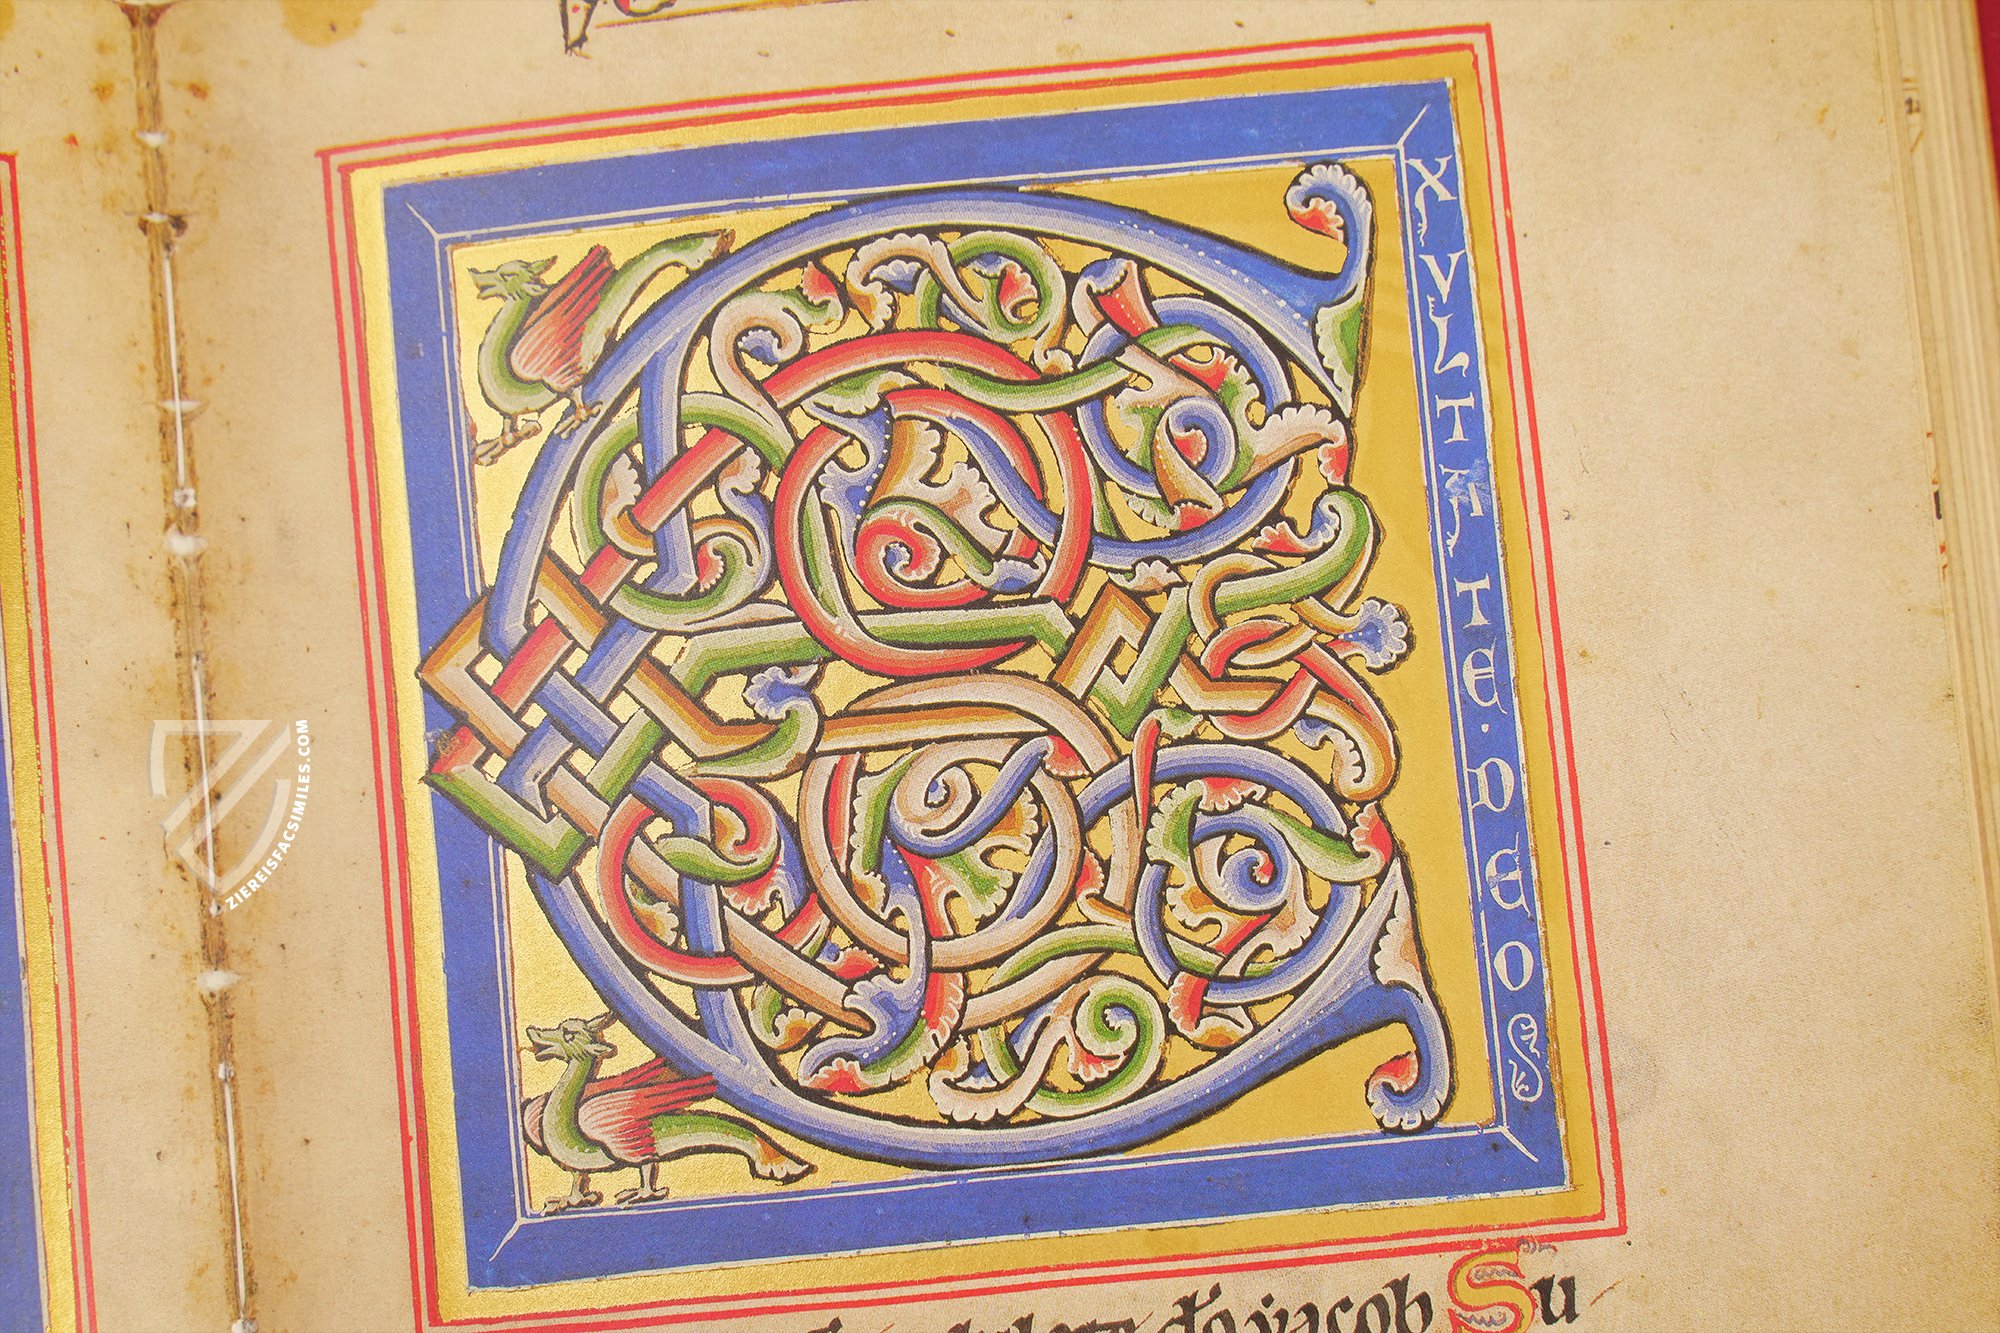 E
XVLTATE·DEO
ZIEREISFACSIMILES.COM
do iacob Su